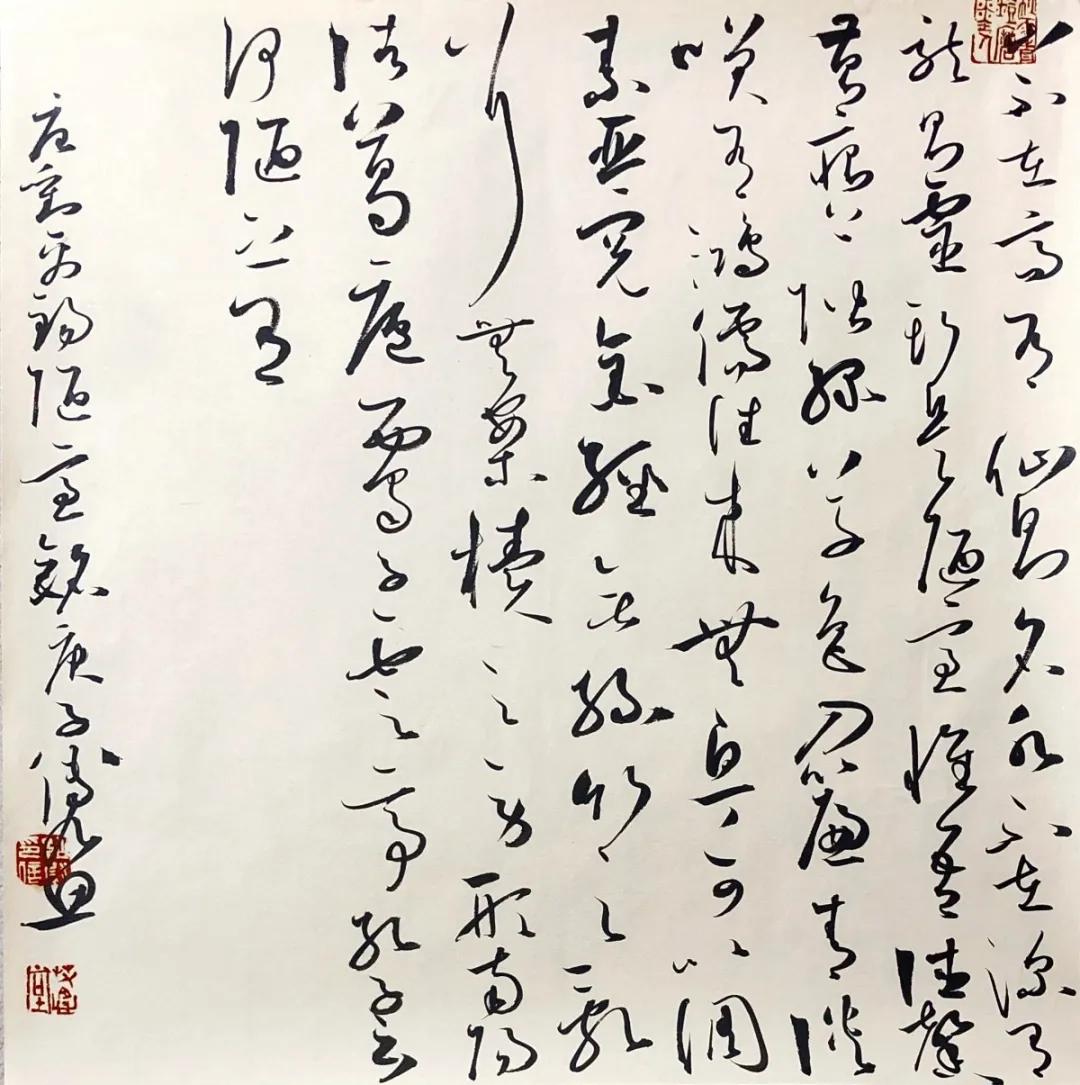 山不在高有仙則名水不在深有
龍則靈斯是陋室惟吾德馨
苔痕上階綠草色入簾青談
笑有鴻儒往來無白丁可以調
素琴閱金經無絲竹之亂
耳無案牘之勞形南陽
諸葛廬西蜀子雲亭孔子云
何陋之有
唐劉禹錫陋室銘庚子